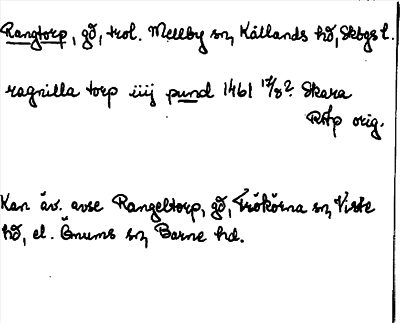 Rangtorp, gd, trol. Mellby sn, Kållands hd, Skbgs l.
ragnilla torp iiij pund 1461 17/8? Skara
RAp orig.
Kan äv. avse Rangeltorp, gd, Trökörna sn, Viste
hd, el. Önums sn, Barne hd.